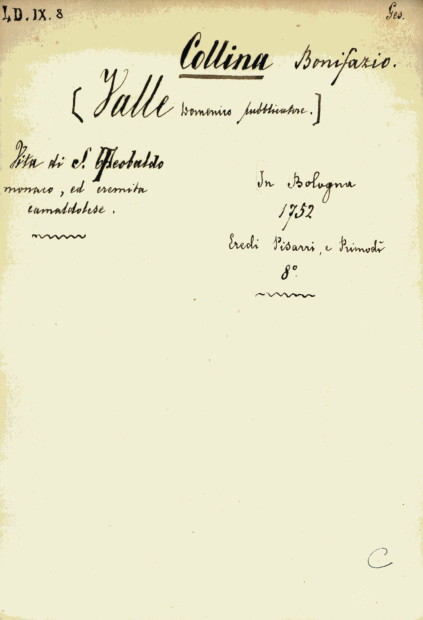 I,D.IX.8
Ges.
Collina Bonifazio.
[Valle Domenico pubblicatore.]
Vita di S. Teobaldo
monaco, ed eremita
camaldolese.
In Bologna
1752
Eredi Pisarri, e Primodì
8º
C